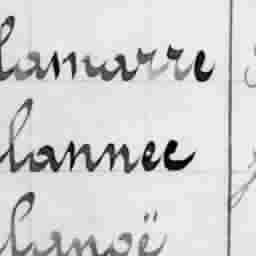 lamarre
lannec
langë